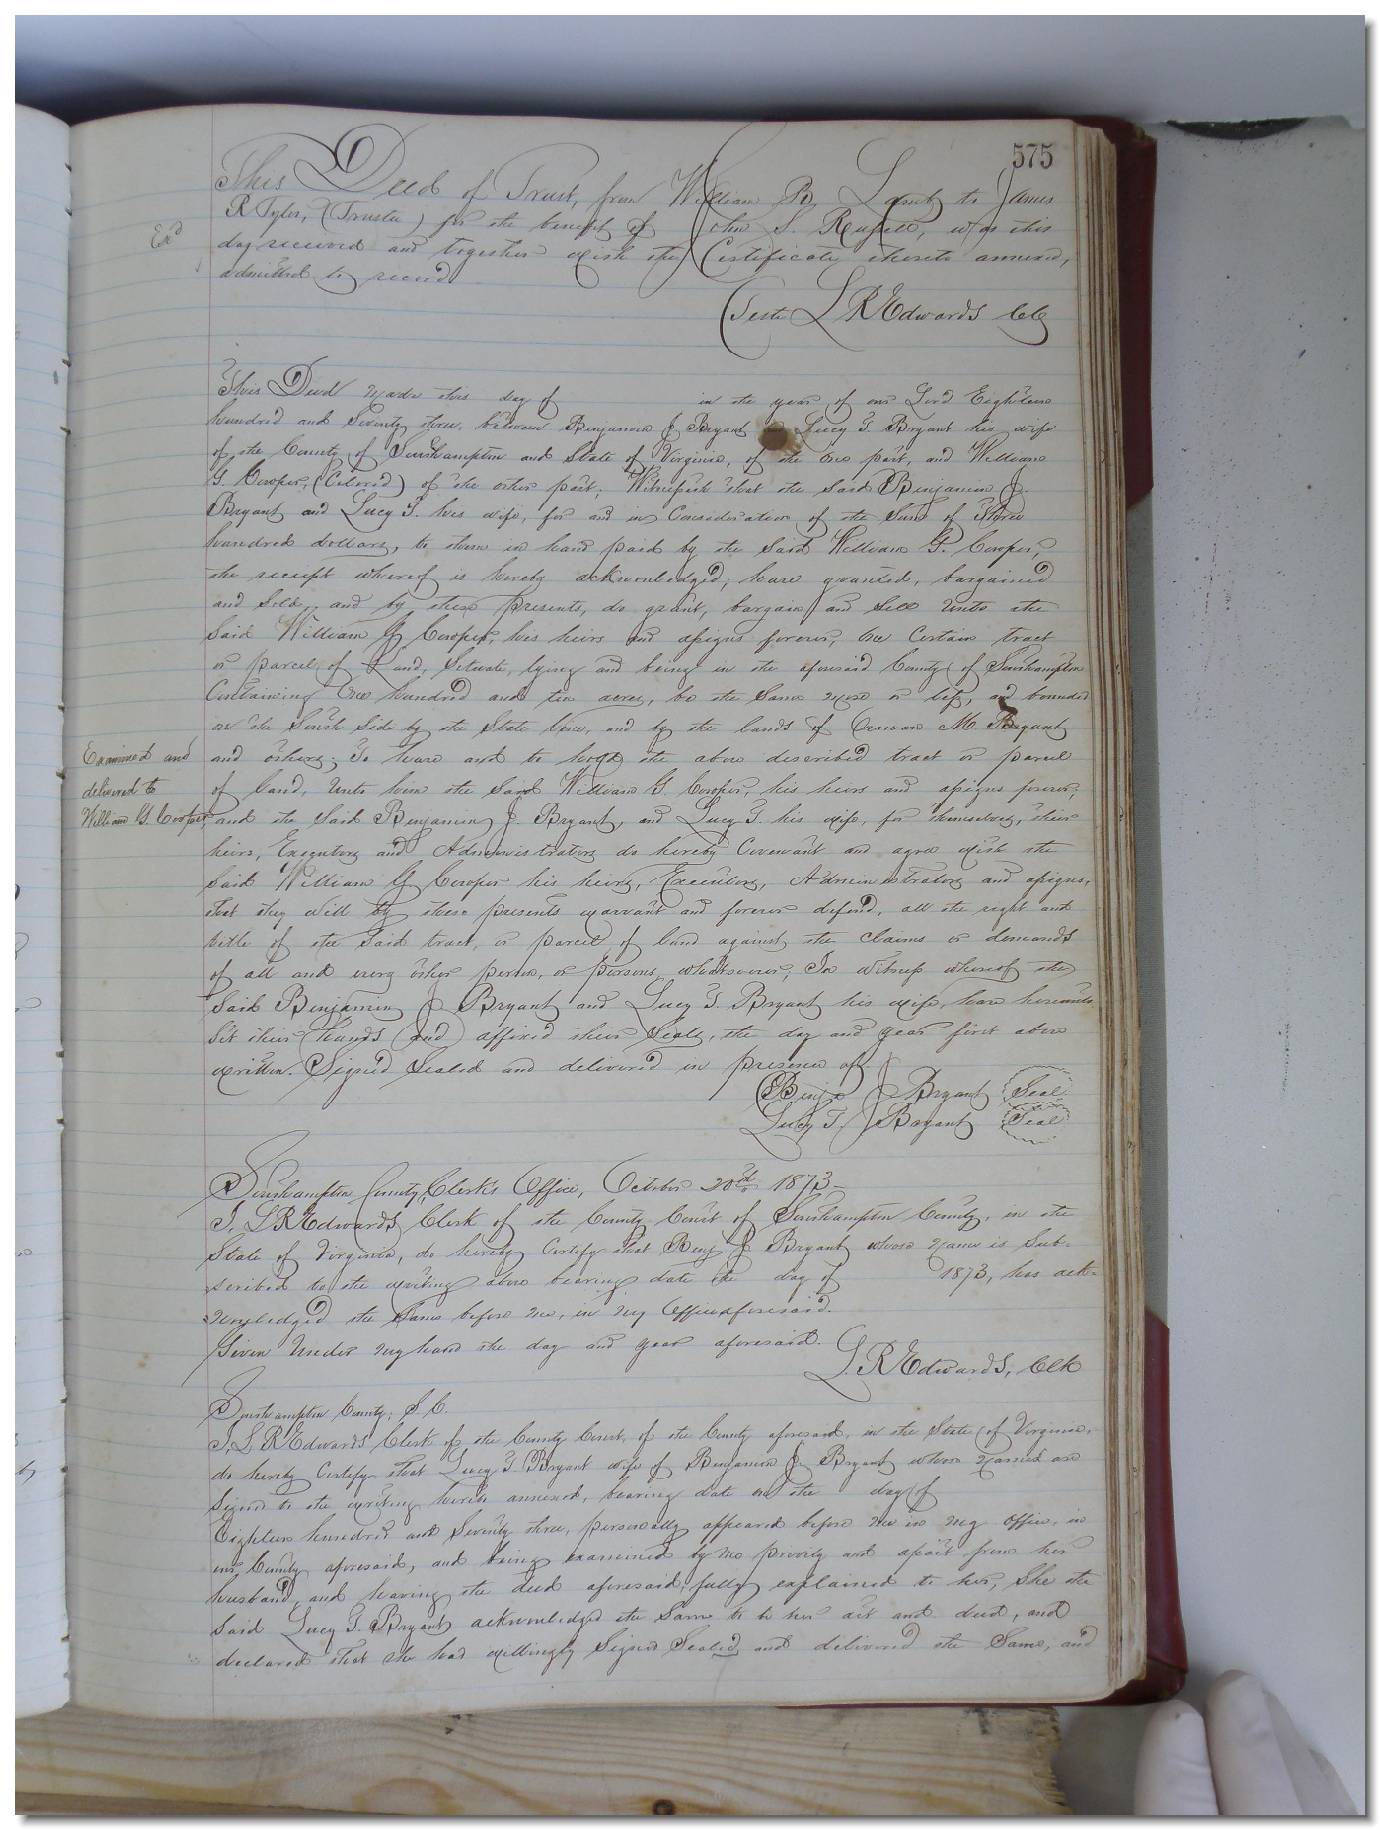 575
This Deed of Trust, from William R. Lamb to James
R Tyler, (Trustee) for the benefit of John S. Russell, was this
Exd
day received and together with the Certificate thereto annexed,
admitted to record.
Teste L R Edwards CC
This Deed made this day of in the year of our Lord Eighteen
hundred and Seventy three, between Benjamin J. Bryant Lucy T. Bryant his wife
of the County of Southampton and State of Virginia, of the one part, and William
G. Cooper, (Colored) of the other part; Witnesseth that the said Benjamin J.
Bryant and Lucy T. his wife, for and in Consideration of the Sum of Three
hundred dollars, to them in hand paid by the said William G. Cooper,
the receipt whereof is hereby acknowledged; have granted, bargained
and Sold, and by these presents, do grant, bargain and Sell unto the
Said William G Cooper, his heirs and assigns forever, One Certain tract
or parcel of Land, Situate, lying and being in the aforesaid County of Southampton
Containing One hundred and ten acres, be the Same more or less, and bounded
on the South Side by the State line, and by the lands of M. Bryant
and others; To have and to hold the above described tract or parcel
of land, unto him the Said William G. Cooper, his heirs and assigns forever,
Examined and
delivered to
William G. Cooper
and the Said Benjamin J. Bryant, and Lucy T. his wife, for themselves, their
heirs, Executors and Administrators do hereby Covenant and agree with the
Said William G Cooper his heirs, Executors, Administrators and assigns,
that they will by these presents warrant and forever defend, all the right and
title of the Said tract, or parcel of land against the claims or demands
of all and every other person, or persons whatsoever, In witness whereof the
Said Benjamin J Bryant and Lucy T. Bryant his wife, have hereunto
Set their hands and affixed their Seals, the day and year first above
written. Signed Sealed and delivered in presence of
Benj J Bryant Seal
Lucy T. Bryant Seal
Southampton County, Clerk's Office, October 20th 1873-
I, L R Edwards Clerk of the County Court of Southampton County, in the
State of Virginia, do hereby Certify that Benj J Bryant whose name is Sub-
scribed to the writing above bearing date the day of 1873, has ack-
nowledged the Same before me, in my Office aforesaid.
Given Under my hand the day and year aforesaid.
L. R Edwards, Clk
Southampton County, S C.
I, L R Edwards Clerk of the County Court, of the County aforesaid, in the State of Virginia,
do hereby Certify that Lucy T Bryant wife of Benjamin J. Bryant whose names are
Signed to the writing hereto annexed, bearing date on the day of
Eighteen hundred and Seventy three, personally appeared before me in my office, in
our County aforesaid, and being examined by me privily and apart from her
husband, and having the deed aforesaid, fully explained to her, She the
Said Lucy T. Bryant acknowledged the Same to be her act and deed, and
declared that She had willingly Signed Sealed and delivered the Same, and